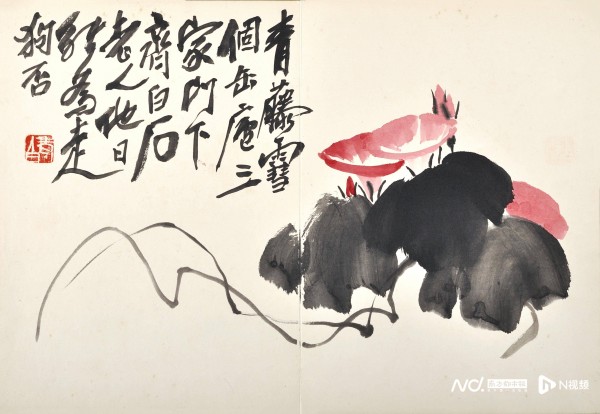 青藤雪
個缶廬三
家門下
齊白石
老人他日
能為走
狗否
N视频